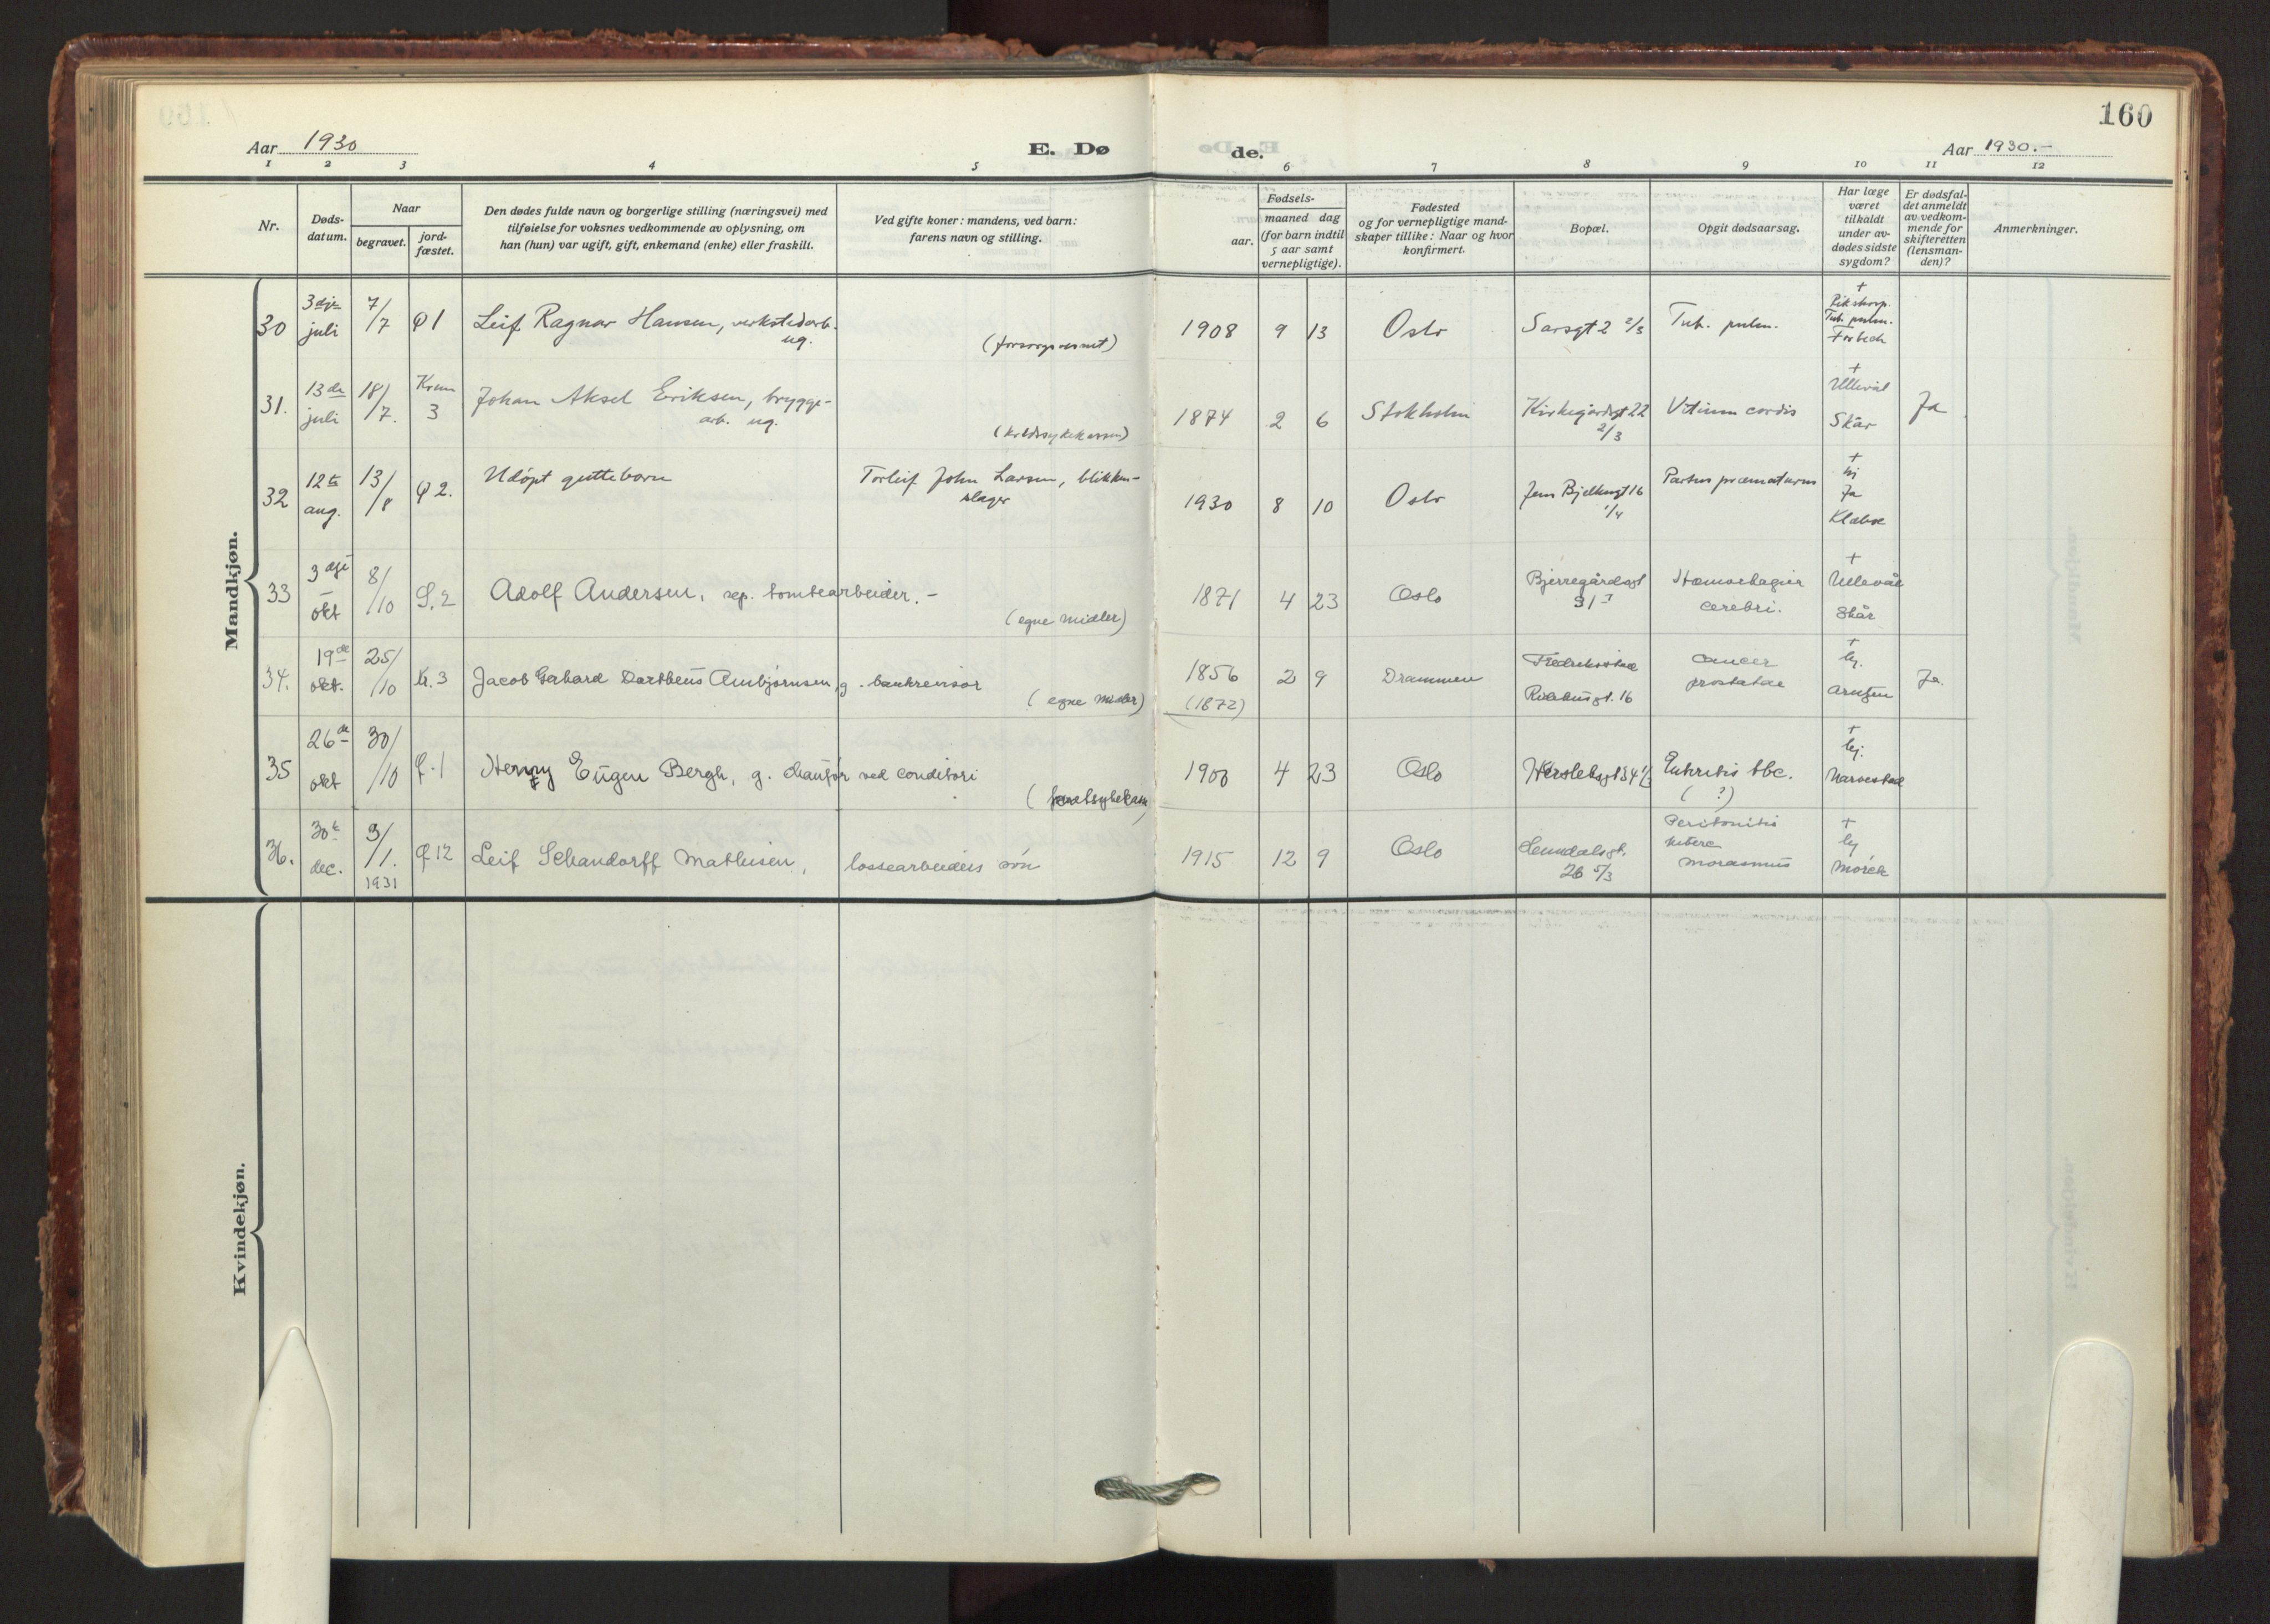 160
Aar 1930
E. Dø
de.
Aar 1930.-
1 2 3 4 5 6 7 8 9 10 11 12
Nr.
Døds-
datum.
Naar
begravet.
jord-
fæstet.
Den dødes fulde navn og borgerlige stilling (næringsvei) med
tilføielse for voksnes vedkommende av oplysning, om
han (hun) var ugift, gift, enkemand (enke) eller fraskilt.
Ved gifte koner: mandens, ved barn:
farens navn og stilling.
aar.
Fødsels-
maaned dag
(for barn indtil
5 aar samt
vernepligtige).
Fødested
og for vernepligtige mand-
skaper tillike: Naar og hvor
konfirmert.
Bopæl.
Opgit dødsaarsag.
Har læge
været
tilkaldt
under av-
dødes sidste
sygdom?
Er dødsfal-
det anmeldt
av vedkom-
mende for
skifteretten
(lensman-
den)?
Anmerkninger.
Mandkjøn.
30 3dje juli 7/7 1 Leif Ragnar Hansen, verkstedarb.
ug.
1908 9 13 Oslo Sarsgt 2 2/3 Tub. pulm.
+
Tub. pulm.
31. 13de juli 18/7. Krem 3 Johan Aksel Eriksen, brygge-
arb. ug.
1874 2 6 Stokholm Kirkegårdsgt 22
2/3
Vitium cordis
+
Ullevål
Skår
Ja
32 12te aug. 13/8 2. Udøpt guttebarn
Torleif John Larsen, blikken-
slager
1930 8 10 Oslo Jens Bjelkesgt 16
1/4
Partus præmaturus
+
Ja
33 3dje okt 8/10 2 Adolf Andersen, rep. tomtearbeider.-
(egne midler)
1871 4 23 Oslo Bjerregårdsgt
31 I
cerebri.
+
Ullevål
Skår
34. 19de okt. 25/10 Kr. 3 Jacob Gabard Darthens Ambjørnsen, g. bankrevisor
(egne midler)
1856 2 9 Drammen
(1872)
Fredrikstad
16
cancer
prostatae
+
Ja.
35 26de okt 30/10 1 Henry Eugen Bergh, g. chaufør ved conditori
1900 4 23 Oslo Herslebsgt 34 tbc.
(?)
+
Narvestad
36. 30te dec. 3/1. 1931 12 Leif Schandorff Mathisen, lossearbeiders søn
1915 12 9 Oslo
26 5/3
Peritonitis
+
Kvindekjøn.